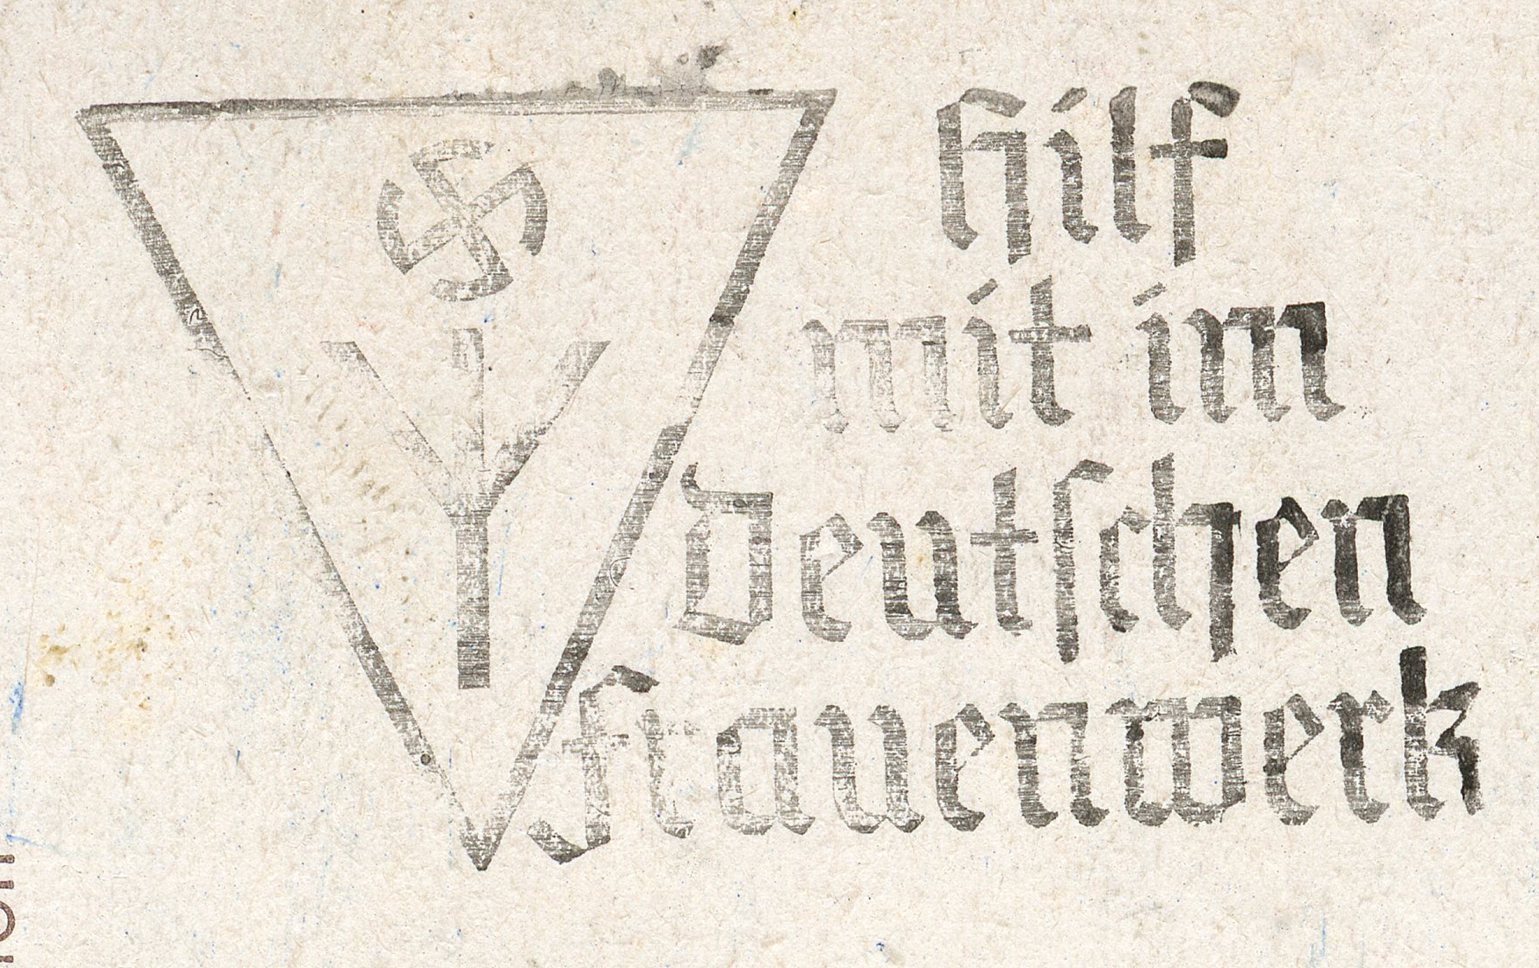 Hilf
mit im
Deutschen
Frauenwerk